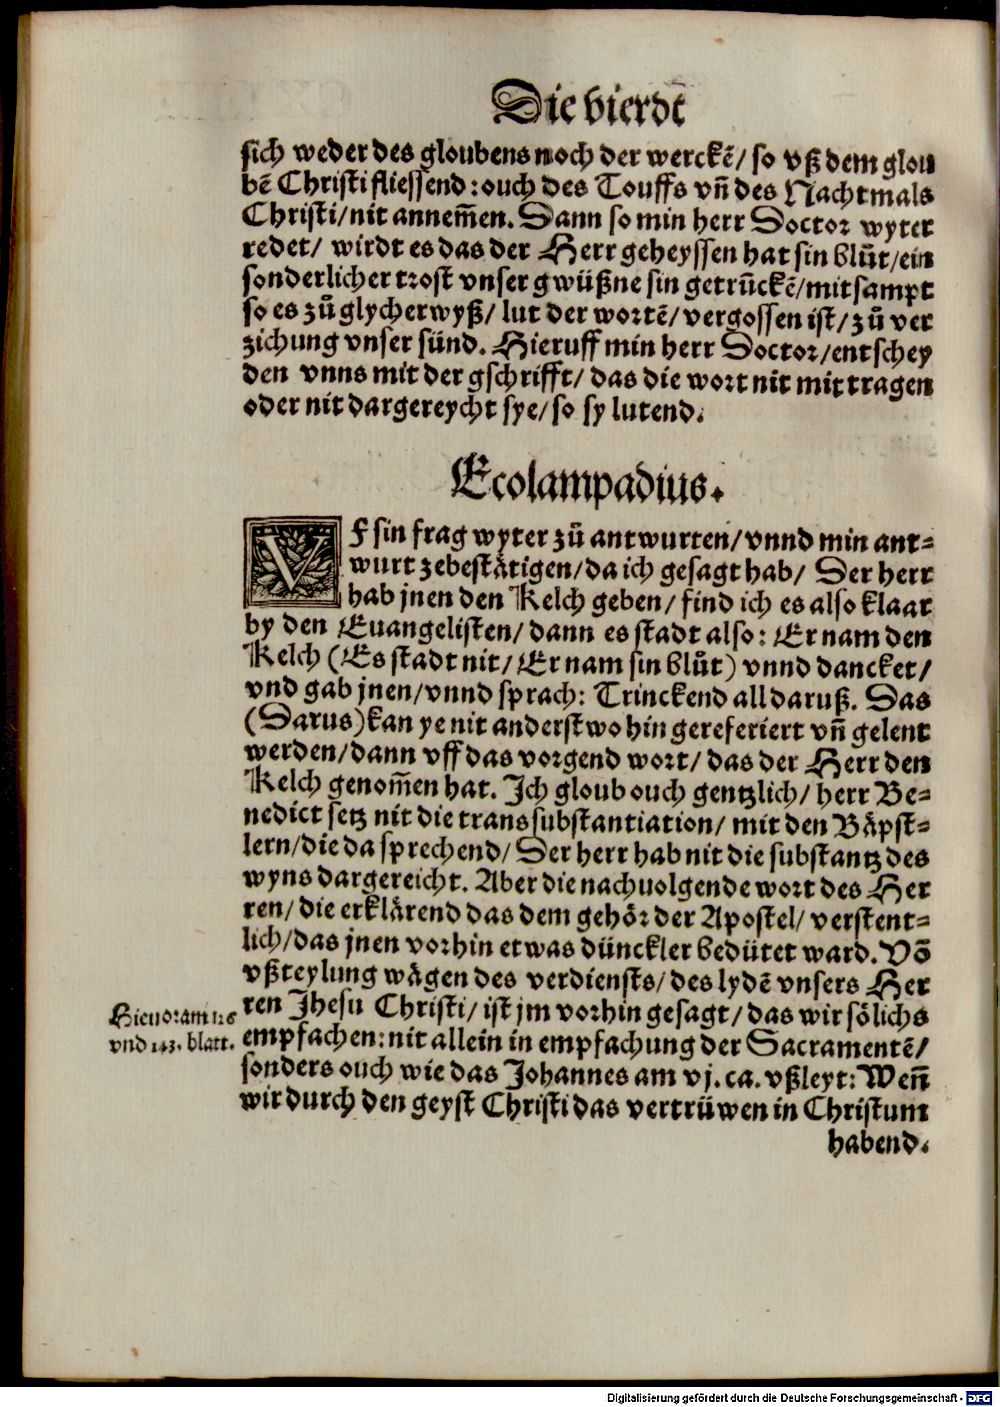 Die vierdt
sich weder des gloubens noch der werckē/ so vß dem glou
bē Christi fliessend: ouch des Touffs vn̄ des Nachtmals
Christi/nit annem̄en. Dann so min herr Doctor wyter
redet/ wirdt es das der Herr geheyssen hat sin blůt/ein
sonderlicher trost vnser gwüßne sin getrūckē/mitsampt
so es zů glycherwyß/ lut der wortē/ vergossen ist/zů ver
zichung vnser sünd. Hieruff min herr Doctor/entschey
den vnns mit der gschrifft/ das die wort nit mittragen
oder nit dargereycht sye/so sy lutend.
Ecolampadius.
VF sin frag wyter zů antwurten/vnnd min ant=
wurt zebestätigen/da ich gesagt hab/ Der herr
hab jnen den Kelch geben/ find ich es also klaar
by den Euangelisten/ dann es stadt also: Er nam den
Kelch (Es stadt nit/ Er nam sin blůt) vnnd dancket/
vnd gab jnen/vnnd sprach: Trinckend all daruß. Das
(Darus)kan ye nit anderstwo hin gereferiert vn̄ gelent
werden/dann vff das vorgend wort/ das der Herr den
Kelch genom̄en hat. Ich gloub ouch gentzlich/ herr Be=
nedict setz nit die transsubstantiation/ mit den Bäpst=
lern/die da sprechend/ Der herr hab nit die substantz des
wyns dargereicht. Aber die nachuolgende wort des Her
ren/ die erklärend das dem gehör der Apostel/ verstent=
lich/das jnen vorhin etwas dünckler bedütet ward. Vō
vßteylung wägen des verdiensts/des lydē vnsers Her
ren Jhesu Christi/ ist jm vorhin gesagt/ das wir sölichs
Hieuor am 118
vnd 143. blatt.
empfachen: nit allein in empfachung der Sacramentē/
sonders ouch wie das Johannes am vj. ca. vßleyt: Wen̄
wir durch den geyst Christi das vertrüwen in Christum
habend.
Digitalisierung gefördert durch die Deutsche Forschungsgemeinschaft - DFG